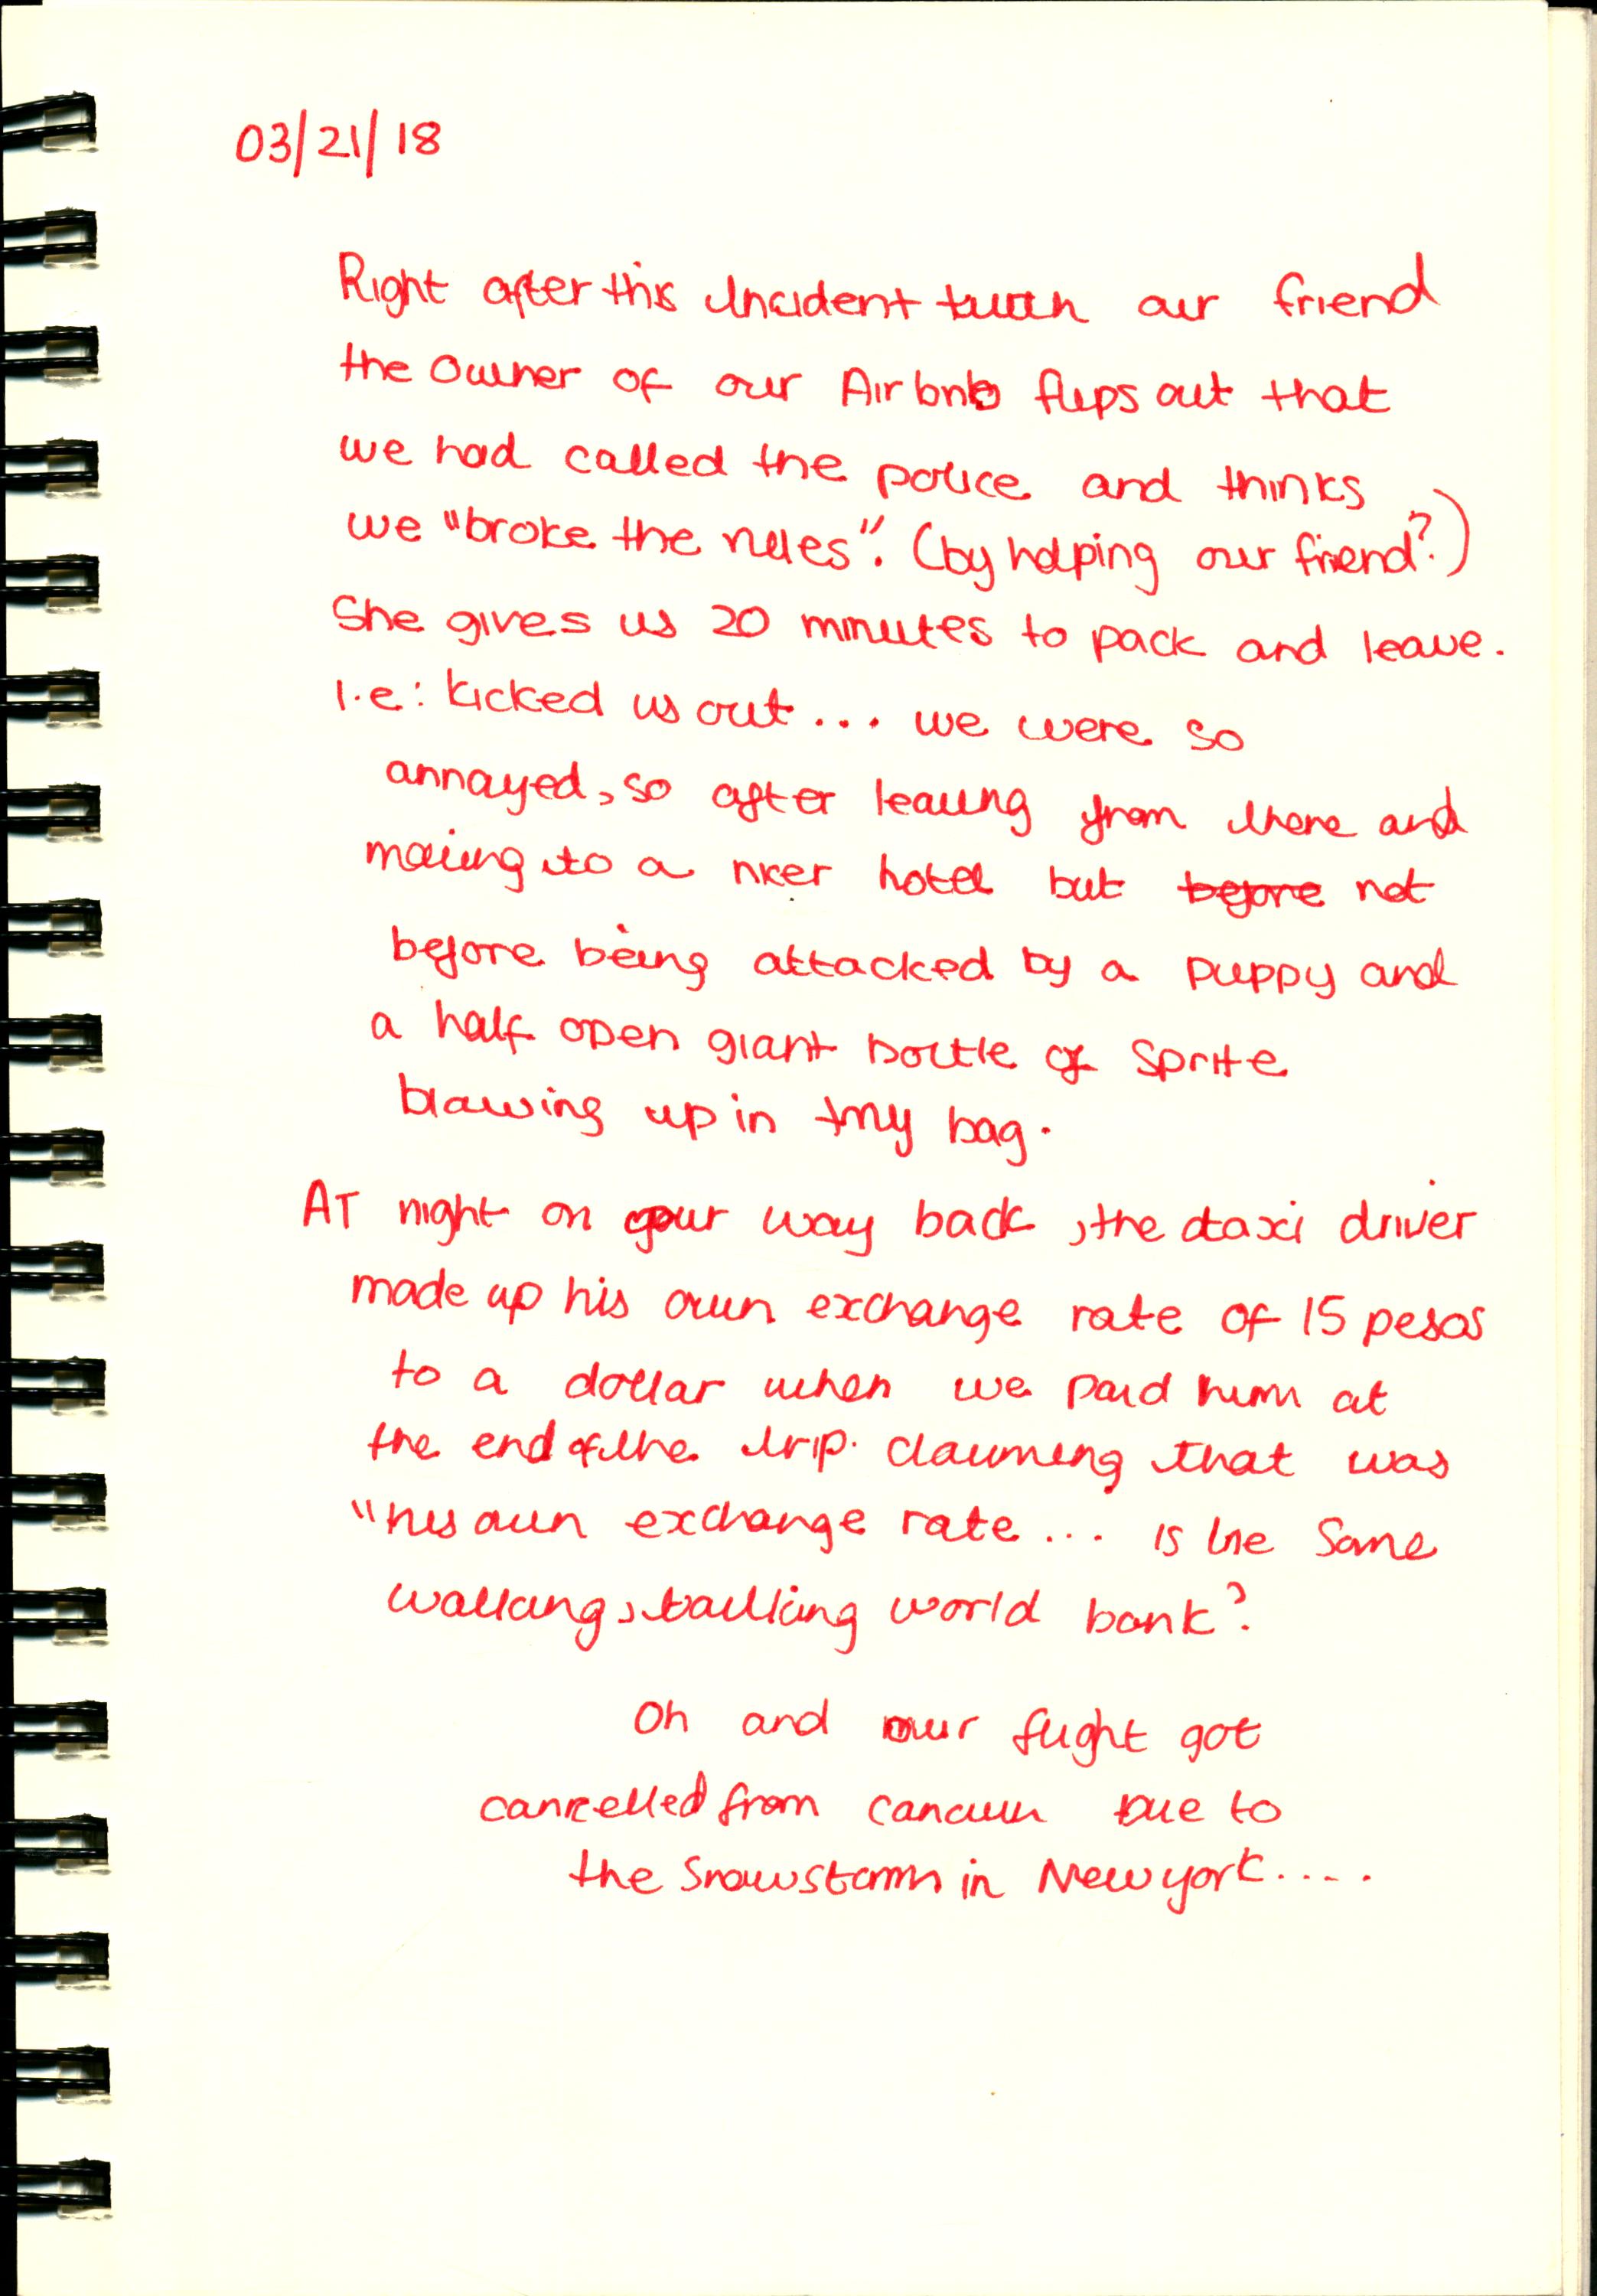 03/21/18
Right after this incident with our friend
the owner of our Airbnb flips out that
we had called the police and thinks
we "broke the rules". (by helping our friend?)
She gives us 20 minutes to pack and leave.
I.e: kicked us out... we were so
annoyed, so after leaving from there and
moving to a nicer hotel but before not
before being attacked by a puppy and
a half open giant bottle of Sprite
blowing up in my bag.
AT night on our way back, the taxi driver
made up his own exchange rate of 15 pesos
to a dollar when we paid him at
the end of the trip. claiming that was
"his own exchange rate... is he some
walking, talking world bank?
Oh and our flight got
cancelled from cancun Due to
the Snowstorm in New york.....